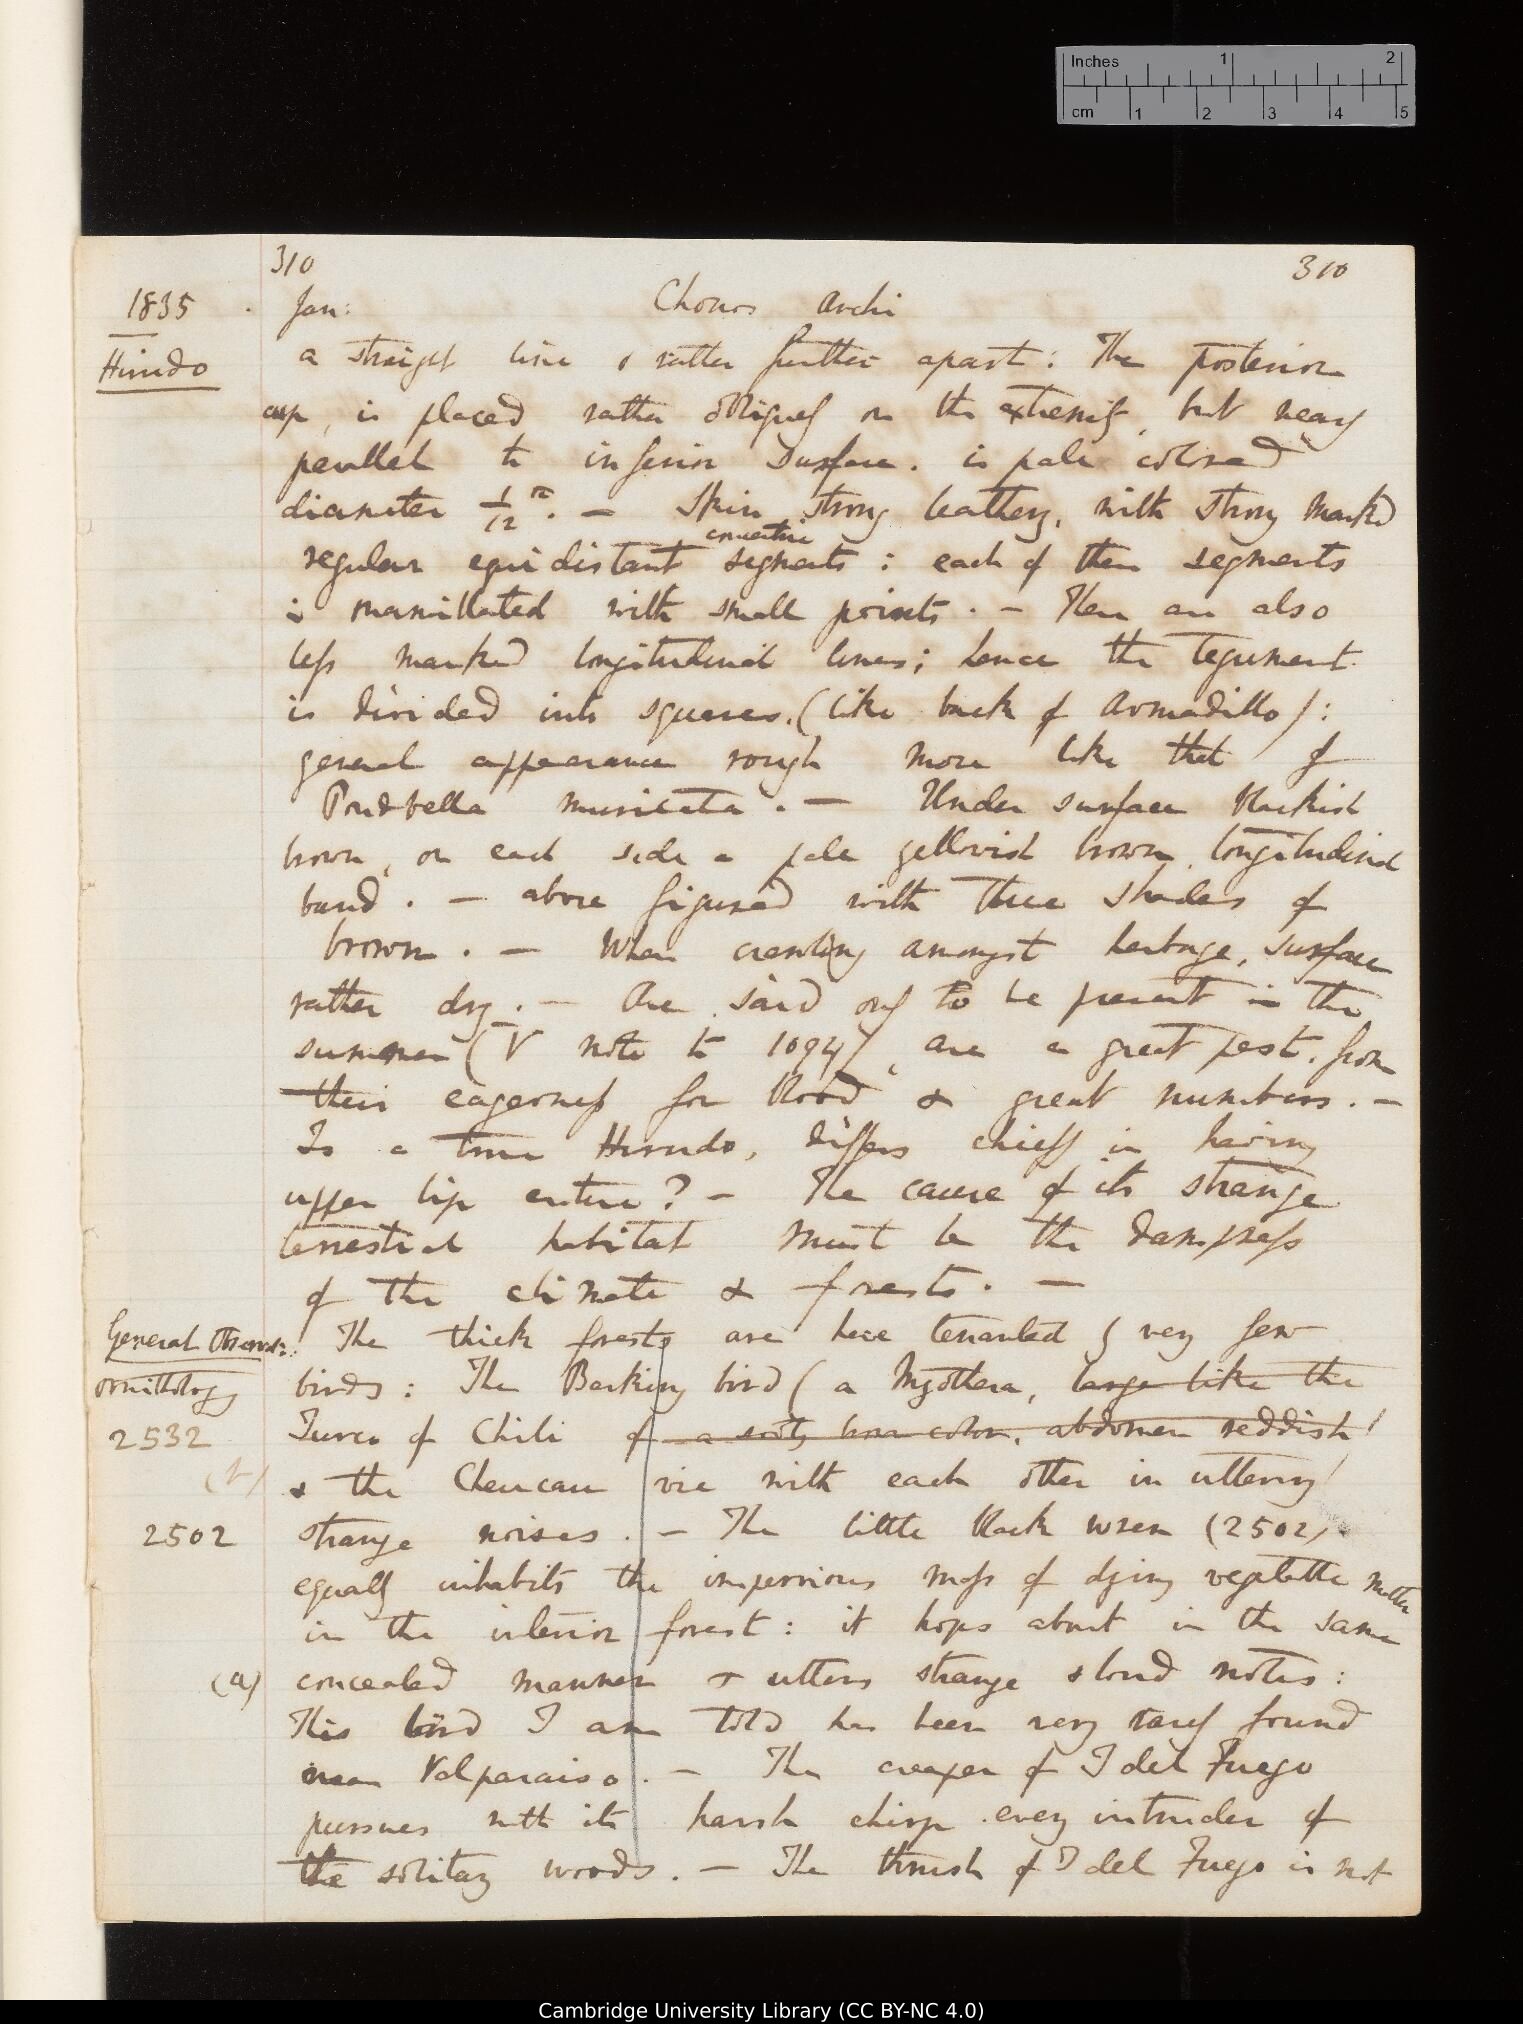 Inches 1 2
cm 1 2 3 4 5
310 310
1835 Jan: Chonos Archi
Hirudo
a straight line & rather further apart: The posterior
cup, is placed rather obliquely on the extremity, but nearly
parallel to inferior surface. is pale colored
diameter 1/12th. — Skin strong leathery, with strong marked
concentric
regular equidistant segments: each of these segments
is mamillated with small points. — There are also
less marked longitudinal lines; hence the tegument
is divided into squares. (like back of Armadillo):
general appearance rough more like that of
muricata. — Under surface blackish
brown, on each side a pale yellowish brown longitudinal
band. — above figured with three shades of
brown. — When crawling amongst herbage, surface
rather dry. — Are said only to be present in the
summer (V note to 1094), are a great pest, from
their eagerness for blood & great numbers. —
Is a true Hirudo, differs chiefly in having
upper lip entire? — The cause of its strange
terrestrial habitat must be the dampness
of the climate & forests. —
General Observ:
Ornithology
2532
(b)
The thick forests are here tenanted by very few
birds: The Barking bird (a Myothera, large like the
Turco of Chili of a sooty brown color, abdomen reddish)
& the Cheucau vie with each other in uttering
2502 strange noises. — The little black wren (2502)
equally inhabits the impervious mass of dying vegetable matter
in the interior forest: it hops about in the same
(a) concealed manner & utters strange & loud notes:
This bird I am told has been very rarely found
near Valparaiso. — The creeper of T del Fuego
pursues with its harsh chirp every intruder of
the solitary woods. — The thrush of T del Fuego is not
Cambridge University Library (CC BY-NC 4.0)